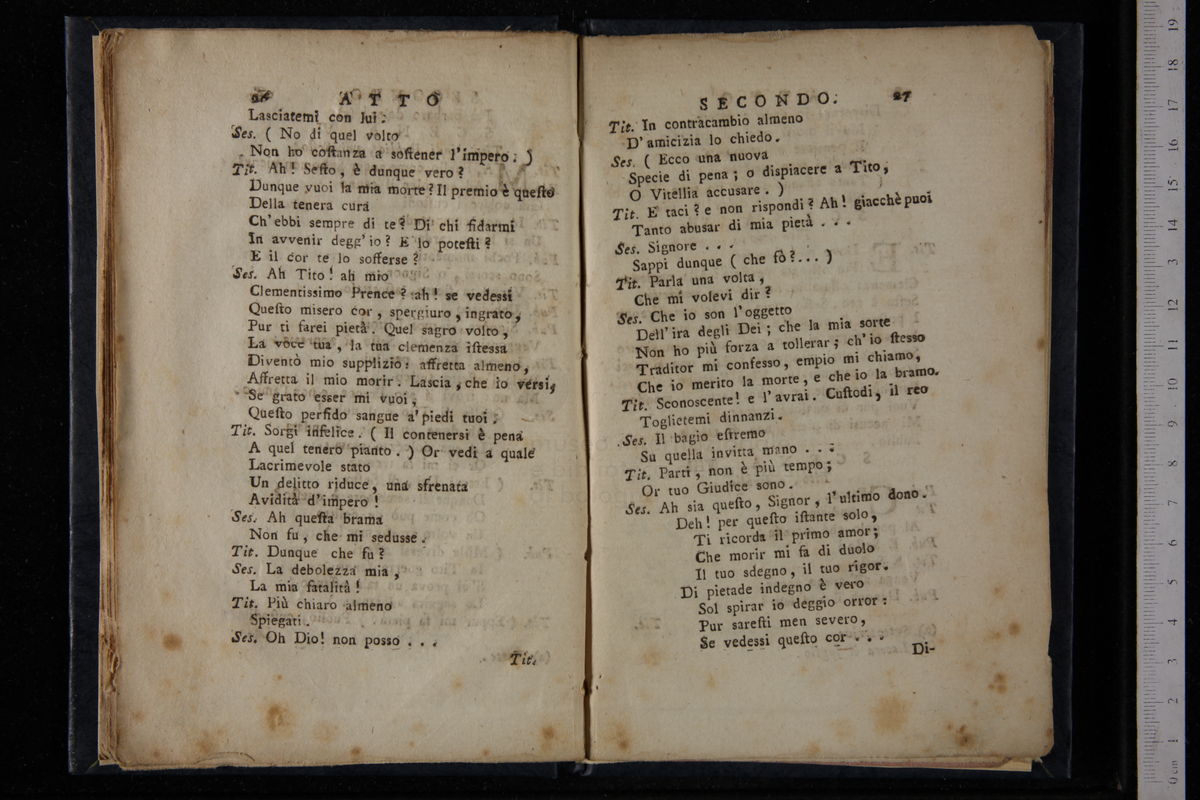 26 ATTO
Lasciatemi con lui.
Ses. ( No di quel volto
Non ho coſtanza a ſoſtener l'impero. )
Tit. Ah! Seſto, è dunque vero?
Dunque vuoi la mia morte? Il premio è queſto
Della tenera cura
Ch'ebbi sempre di te? Di chi fidarmi
In avvenir degg'io? E lo poteſti?
E il cor te lo sofferse?
Ses. Ah Tito! ah mio
Clementissimo Prence? ah! se vedessi
Queſto misero cor, spergiuro, ingrato,
Pur ti farei pietà. Quel sagro volto,
La voce tua, la tua clemenza iſtessa
Diventò mio supplizio: affretta almeno,
Affretta il mio morir. Lascia, che io versi,
Se grato esser mi vuoi,
Queſto perfido sangue a'piedi tuoi.
Tit. Sorgi infelice. ( Il contenersi è pena
A quel tenero pianto. ) Or vedi a quale
Lacrimevole stato
Un delitto riduce, una sfrenata
Avidità d'impero!
Ses. Ah queſta brama
Non fu, che mi sedusse.
Tit. Dunque che fu?
Ses. La debolezza mia,
La mia fatalità!
Tit. Più chiaro almeno
Spiegati.
Ses. Oh Dio! non posso . . .
Tit.
SECONDO. 27
Tit. In contracambio almeno
D'amicizia lo chiedo.
Ses. ( Ecco una nuova
Specie di pena; o dispiacere a Tito,
O Vitellia accusare. )
Tit. E taci? e non rispondi? Ah! giacchè puoi
Tanto abusar di mia pietà . . .
Ses. Signore . . .
Sappi dunque ( che fò?... )
Tit. Parla una volta,
Che mi volevi dir?
Ses. Che io son l'oggetto
Dell'ira degli Dei; che la mia sorte
Non ho più forza a tollerar; ch'io ſtesso
Traditor mi confesso, empio mi chiamo,
Che io merito la morte, e che io la bramo.
Tit. Sconoscente! e l'avrai. Cuſtodi, il reo
Toglietemi dinnanzi.
Ses. Il bagio eſtremo
Su quella invitta mano . . .
Tit. Parti, non è più tempo;
Or tuo Giudice sono.
Ses. Ah sia queſto, Signor, l'ultimo dono.
Deh! per queſto iſtante solo,
Ti ricorda il primo amor;
Che morir mi fa di duolo
Il tuo sdegno, il tuo rigor.
Di pietade indegno è vero
Sol spirar io deggio orror:
Pur sareſti men severo,
Se vedessi queſto cor . . .
Di-
0 cm 1 2 3 4 5 6 7 8 9 10 11 12 13 14 15 16 17 18 19